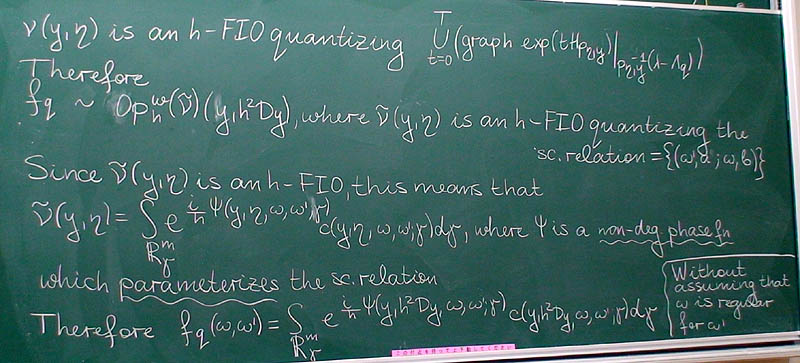 ν(y,η) is an h-FIO quantizing ⋃_{t=0}^{T} (graph exp(tH_{p_{η,y}})|_{p_{η,y}^{-1}(λ-Λ_q)})
Therefore
f_q ~ Op_h^w(ν̃)(y,h²Dy), where ν̃(y,η) is an h-FIO quantizing the
sc.relation = {(ω',α';ω,b)}
Since ν̃(y,η) is an h-FIO, this means that
ν̃(y,η) = ∫_{ℝ_γ^m} e^{i/h Ψ(y,η,ω,ω';γ)} c(y,η,ω,ω';γ)dγ, where Ψ is a non-deg. phase fn
which parameterizes the sc.relation
Therefore f_q(ω,ω') = ∫_{ℝ_γ^m} e^{i/h Ψ(y,h²Dy,ω,ω';γ)} c(y,h²Dy,ω,ω';γ)dγ
Without
assuming that
ω is regular
for ω'